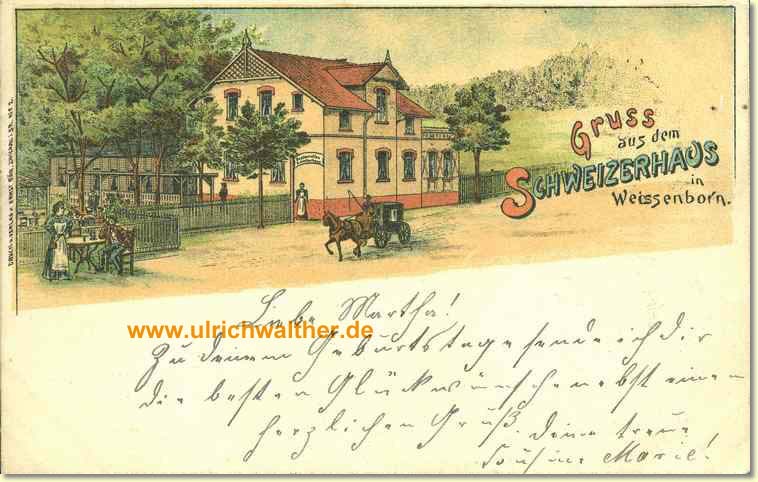 Gruss
aus dem
SCHWEIZERHAUS
in
Weissenborn.
Liebe Martha!
www.ulrichwalther.de
Zu deinem Geburtstage sende ich dir
die besten Glückwünsche nebst einem
herzlichen Gruß. Deine treue
Cousine Marie!